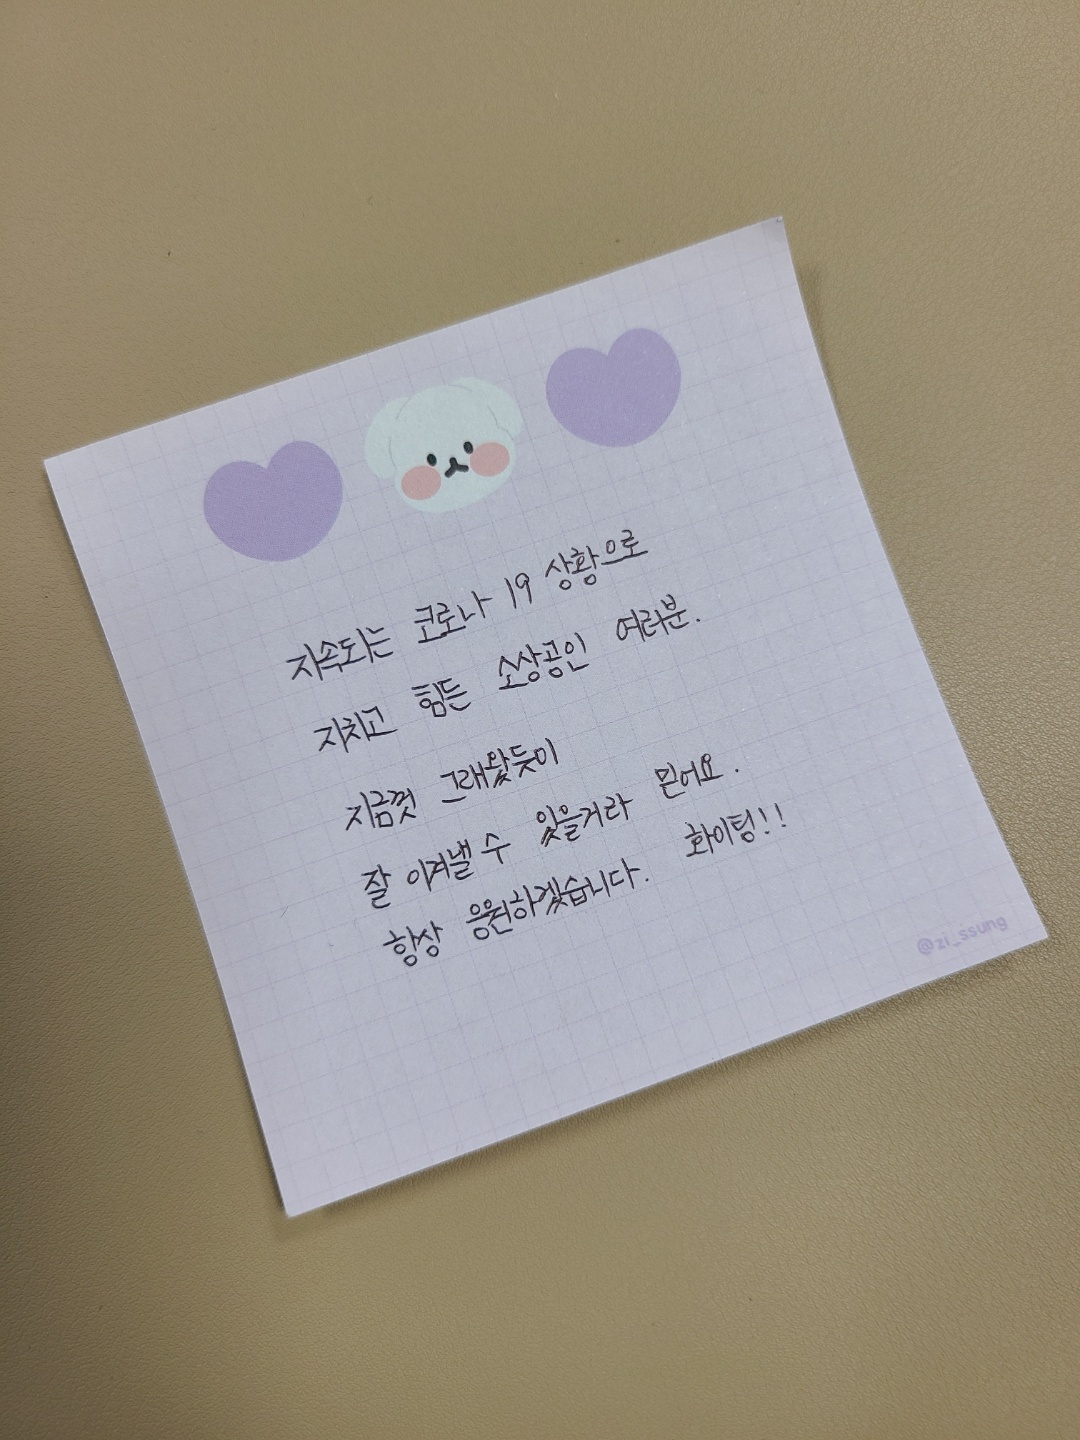 지속되는 코로나 19 상황으로
지치고 힘든 소상공인 여러분.
지금껏 그래왔듯이
잘 이겨낼 수 있을거라 믿어요.
항상 응원하겠습니다. 화이팅!!
@zi_ssung